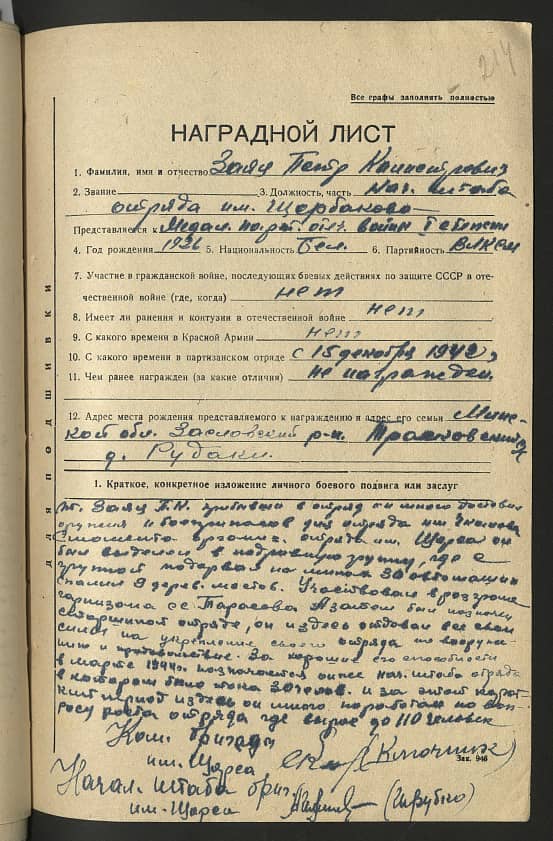 214
Все графы заполнять полностью
НАГРАДНОЙ ЛИСТ
1. Фамилия, имя и отчество Заяц Петр
2. Звание 3. Должность, часть Нач. штаба
отряда им. Щорбакова
Представляется к Медал. парт. отеч. войны I степени
4. Год рождения 1926 5. Национальность Бел. 6. Партийность ВЛКСМ
7. Участие в гражданской войне, последующих боевых действиях по защите СССР в оте-
чественной войне (где, когда) нет
8. Имеет ли ранения и контузии в отечественной войне нет
9. С какого времени в Красной Армии нет
10. С какого времени в партизанском отряде с 15 декабря 1942 г
11. Чем ранее награжден (за какие отличия) не награжден
12. Адрес места рождения представляемого к награждению и адрес его семьи Минс-
кой обл. Заславский р-н.
д. Рудаки.
ДЛЯ ПОДШИВКИ
1. Краткое, конкретное изложение личного боевого подвига или заслуг
т. Заяц П.К. прибывши в отряд он много доставил
оружия и боеприпасов для отряда им. Чкалова
С момента организ. отряда им. Щорса он
был выделен в подрывную группу, где с
группой подорвал на минах 30 автомашин
спалил 9 дерев. мостов. Участвовал в розгроме
гарнизона с.с. Тарасова А затем был назначен
старшиной отряда, он и здесь отдавал все свои
силы на укрепление своего отряда по вооруже-
нию и продовольствие. За хорошие его способности
в марте 1944г. позначается он нач. штаба отряда
в котором было тока 30 челов. и за этот корот-
кий период и здесь он много поработал по воп-
росу роста отряда где вырос до 110 человек
Ком. бригады
им. Щорса (Ключник)
Зак. 946
Начал. штаба бриг.
им. Щорса